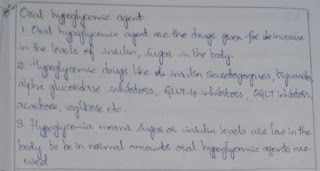 Oral hypoglycemic agent
1. Oral hypoglycemic agent are the drugs given for increase
in the levels of insulin, sugar in the body.
2. Hypoglycemic drugs like insulin secretogogues, biguanides
alpha glucosidase inhibitors, GLUT-4 inhibitors, SGLT inhibitors,
acarbose, voglibose etc.
3. Hypoglycemia means sugar or insulin levels are low in the
body to be in normal amounts oral hypoglycemic agents are
used